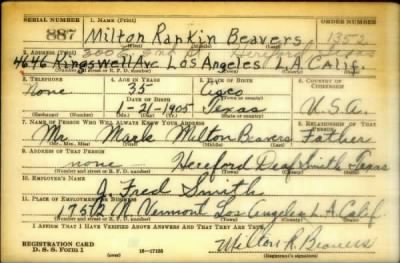 SERIAL NUMBER 1. NAME (Print) ORDER NUMBER
887 Milton Rankin Beavers 1352
2. ADDRESS (Print)
4646 Kingswell Ave Los Angeles L.A. Calif.
3. TELEPHONE 4. AGE IN YEARS 5. PLACE OF BIRTH 6. COUNTRY OF CITIZENSHIP
None 35 Cisco
DATE OF BIRTH
1-21-1905 Texas U.S.A.
7. NAME OF PERSON WHO WILL ALWAYS KNOW YOUR ADDRESS 8. RELATIONSHIP OF THAT PERSON
Mr. Mark Milton Beavers Father
(Mr., Mrs., Miss) (First) (Middle) (Last)
9. ADDRESS OF THAT PERSON
none Hereford Deaf Smith Texas
(Number and street or R. F. D. number) (Town) (County) (State)
10. EMPLOYER'S NAME
J. Fred Smith
11. PLACE OF EMPLOYMENT OR BUSINESS
175 N. Vermont Los Angeles L.A. Calif.
(Number and street or R. F. D. number) (Town) (County) (State)
I AFFIRM THAT I HAVE VERIFIED ABOVE ANSWERS AND THAT THEY ARE TRUE.
REGISTRATION CARD
D. S. S. Form 1 16-17105 Milton R. Beavers
(Registrant's signature)